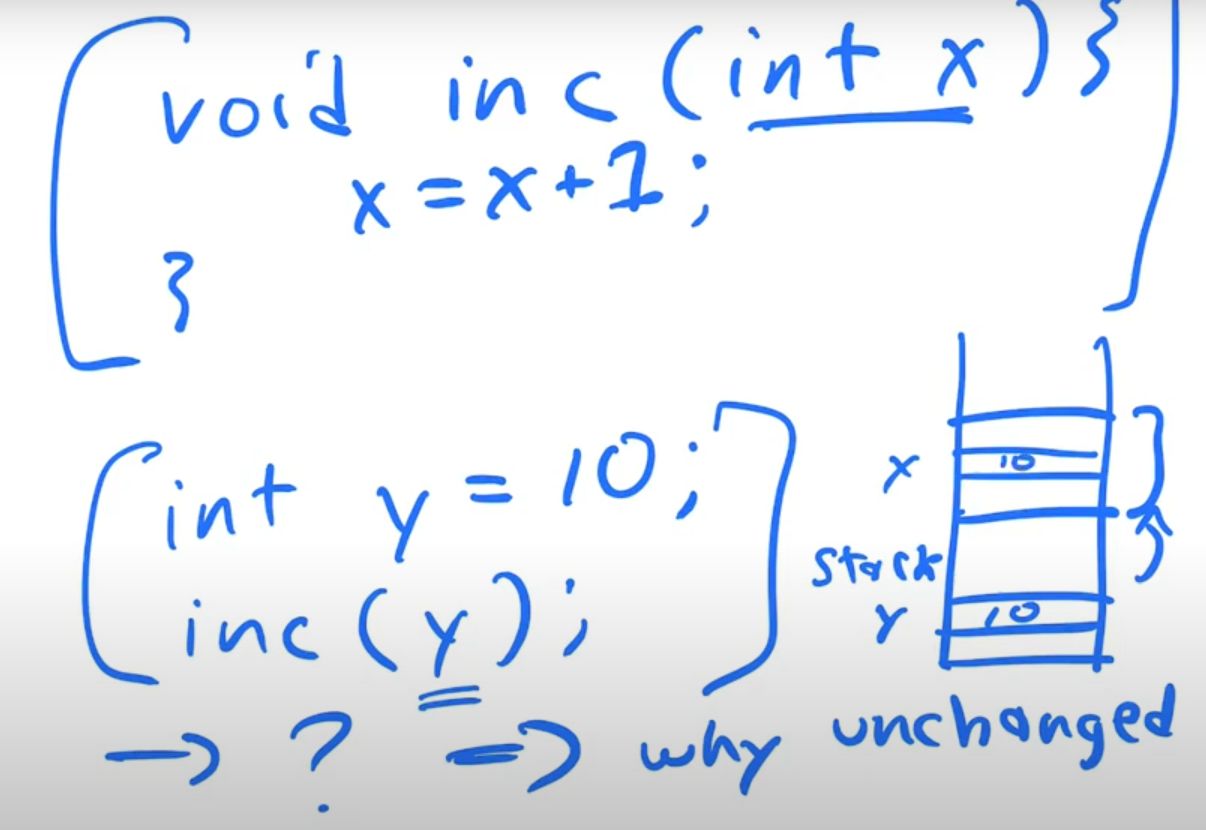 void inc (int x) }
x = x + 1;
}
int y = 10;
inc (y);
x 10
stack
Y 10
→ ? ⇒ why unchanged